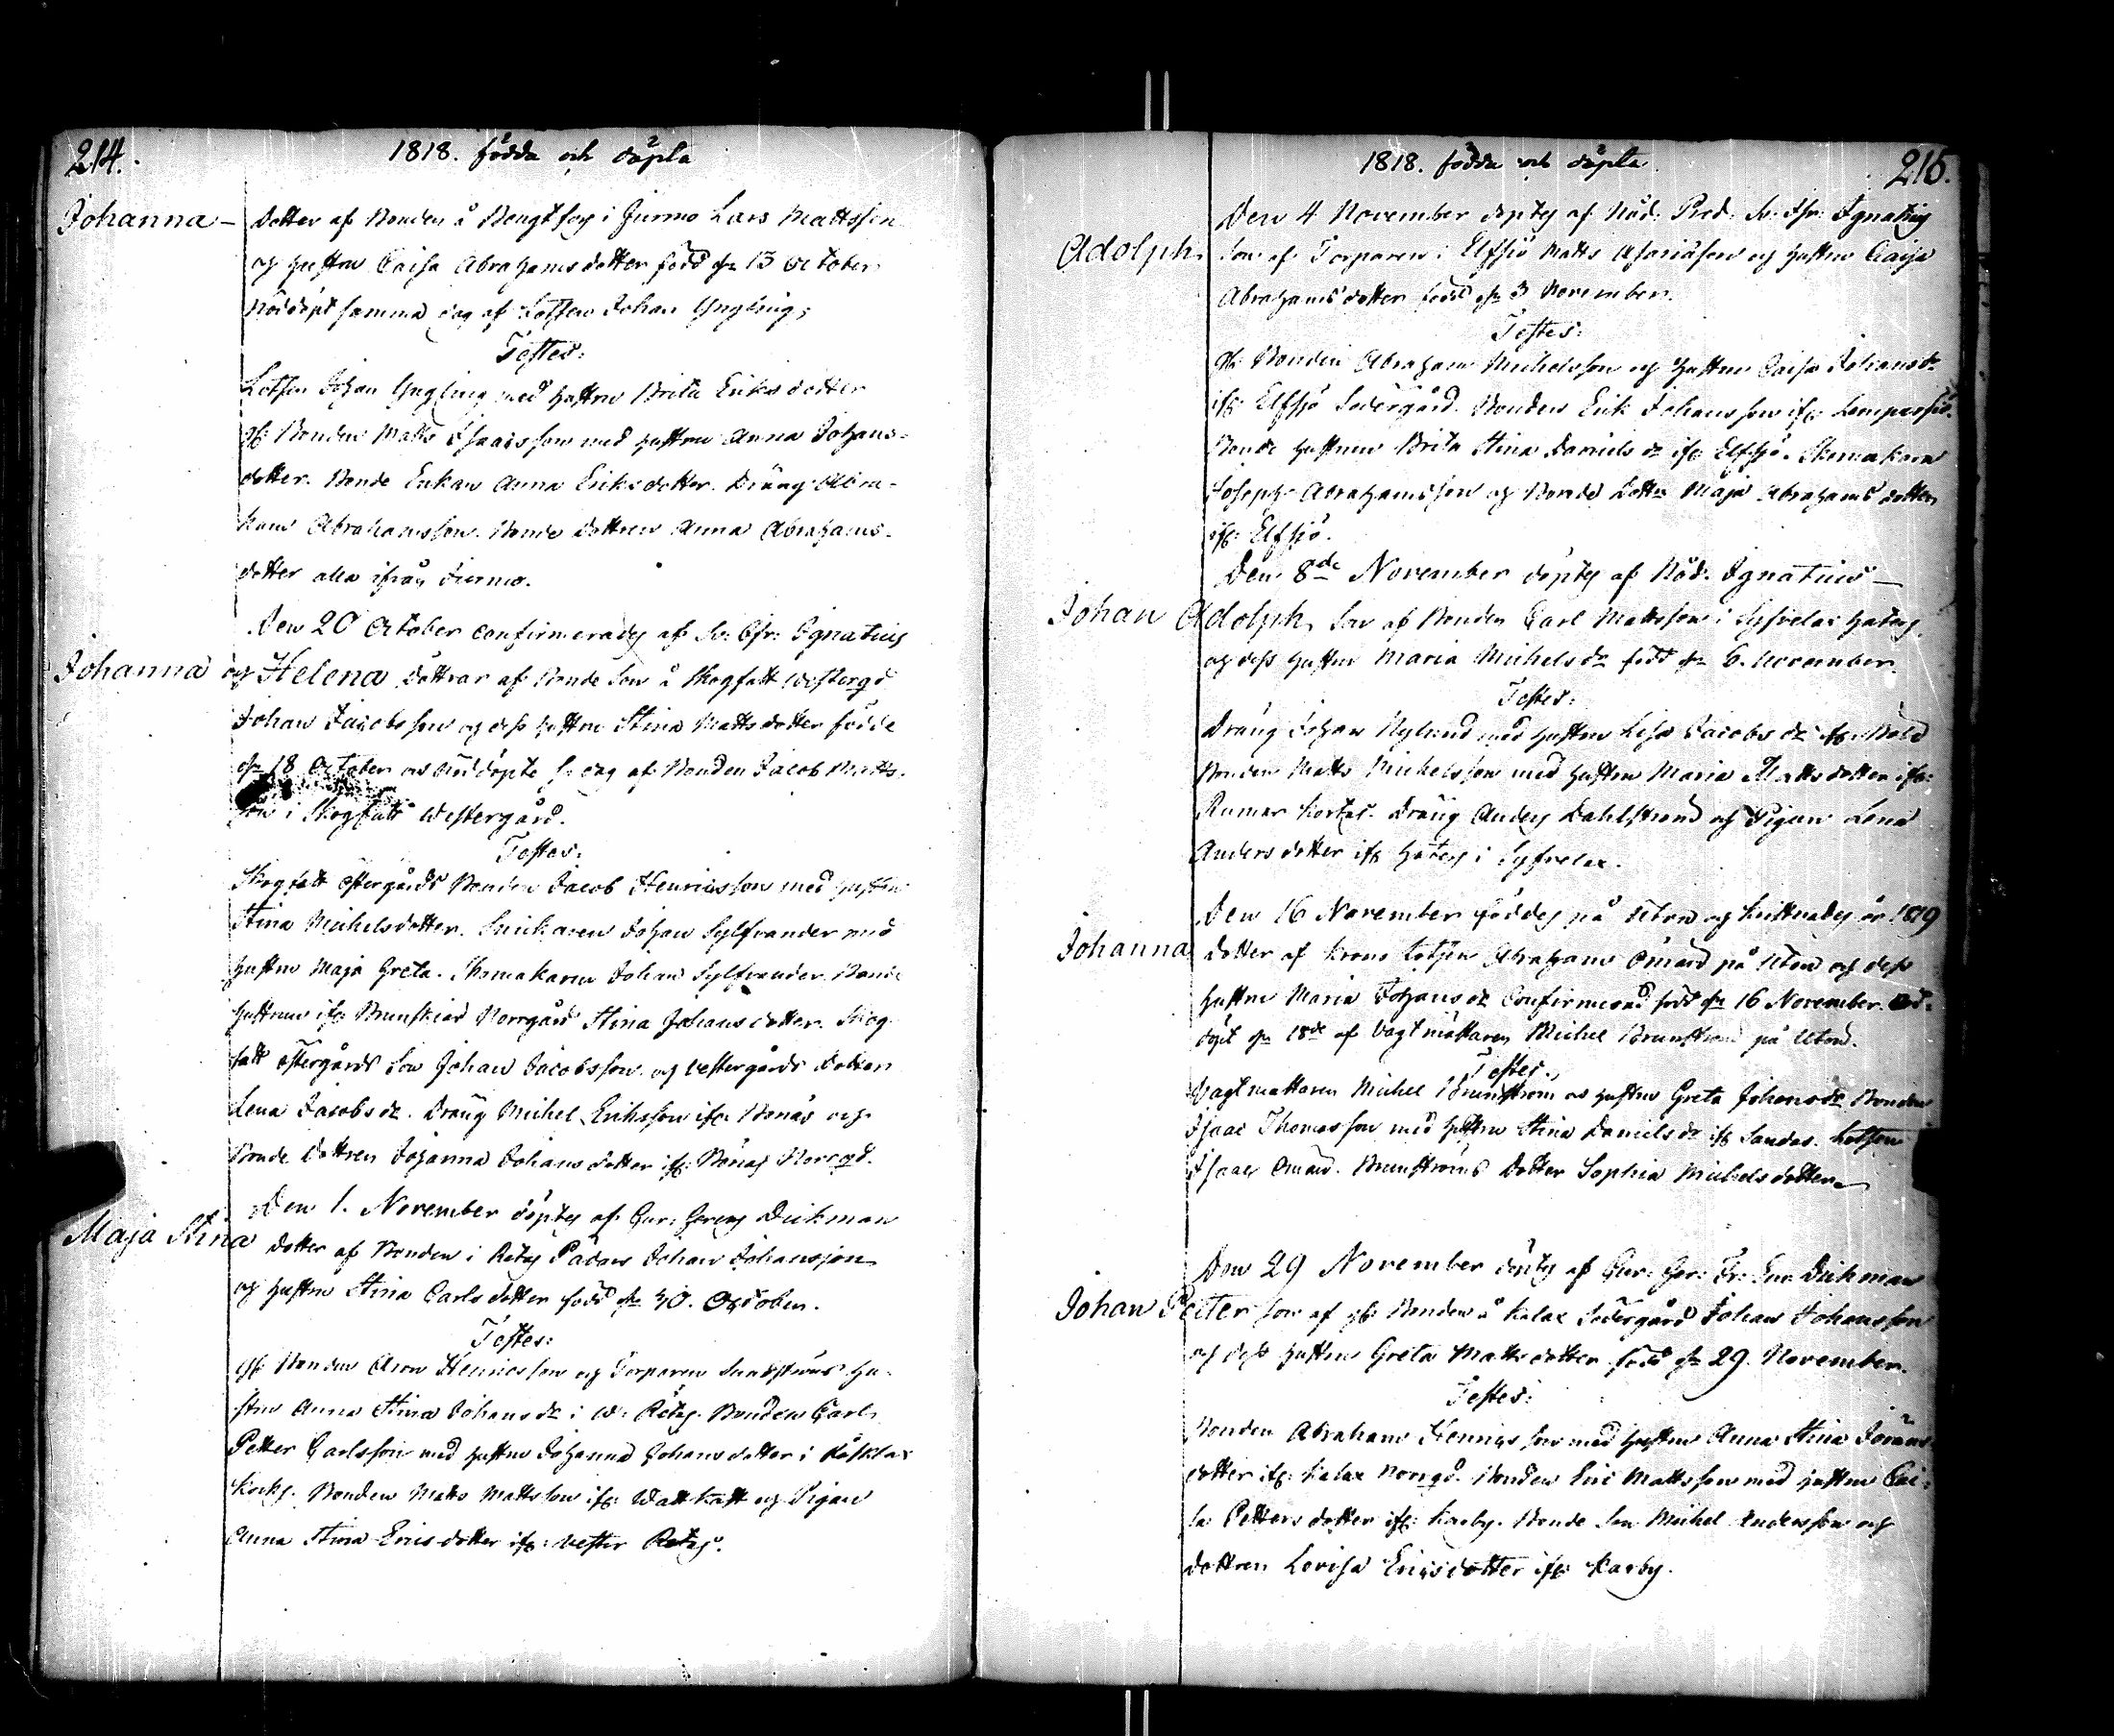 214.
1818. födda och döpta
Johanna – Dotter af Bonden å Bengtsby i Jurmo Lars Mattsson
och hustru Caisa Abrahamsdotter född d. 13 October
nöddöpt samma dag af Lotsen Johan Yngling;
Testes:
Lotsen Johan Yngling med hustru Brita Eriksdotter
Bonden Matts Isaacsson med hustru Anna Johans-
dotter. Bonde Enkan Anna Eriksdotter. Dräng Abra-
ham Abrahamsson. Bonde dottren Anna Abrahams-
dotter alla ifrån Jurmo.
Den 20 October confirmerades af Ignatius
Johanna och Helena Döttrar af Bonde Son å Skogsatt Westergd
Johan Jacobsson och dess hustru Stina Mattsdotter födde
d. 18 October och nöddöpte s. dag af Bonden Jacob Matts-
son i Skogsatt Westergård.
Testes:
Skogsatt östergårds Bonden Jacob Henricsson med hustru
Stina Michelsdotter. Snickaren Johan Sylfvander med
hustru Maja Greta. Skomakaren Johan Sylfvander. Bonde
hustrun ifr. Brunskiär Norrgård Stina Johansdotter. Skog-
satt östergårds Son Johan Jacobsson och vestergårds Dotter
Lena Jacobs dr. Dräng Michel Eriksson ifr. Benäs och
Bonde Dottren Johanna Johansdotter ifr. Norrgd.
Den 1. November döptes af Dickman
Maja Stina Dotter af Bonden i Johan Johansson
och hustru Stina Carlsdotter född d. 30. October.
Testes:
Bonden Aron Henricsson och Torparen hu-
stru Anna Stina Johans dr i W: Retas. Bonden Carl
Petter Carlsson med hustru Johanna Johansdotter i
Bonden Matts Mattsson ifr. Wattkast och Pigan
Anna Stina Ericsdotter ifr. Vester Retas.
1818. födda och döpta.
215.
Den 4 November döptes af Nåd. Pred. Ignatius
Adolph Son af Torparen i Elfsjö Matts och hustru Caisa
Abrahamsdotter född d. 3 November.
Testes:
Bonden Abraham Michelsson och hustru Caisa Johans dr
ifr. Elfsjö Södergård. Bonden Erik Johansson ifr.
Bonde hustrun Brita Stina Daniels dr ifr. Elfsjö. Skomakarn
Joseph Abrahamsson och Bonde Dottr. Maja Abrahamsdotter
ifr. Elfsjö.
Den 8de November döptes af Nåd. Ignatius –
Johan Adolph, Son af Bonden Carl Mattsson i
och dess hustru Maria Michels dr född d. 6. November.
Testes:
Dräng Johan Nylund med hustru Lisa Jacobs dr ifr.
Bonden Matts Michelsson med hustru Maria Mattsdotter ifr.
Dräng Anders Dahlström och Pigan Lena
Andersdotter ifr.
Den 16 November föddes på Utön och år 1819
Johanna Dotter af Krono Lotsen Abraham Öman på Utön och dess
hustru Maria Johans dr Confirmerad född d. 16 November. Nöd-
döpt d. 18de af Vagtmästaren Michel Brunström på Utön.
Testes.
Vagtmästaren Michel Brunström och hustru Greta Johans dr Bonden
Isaac Thomasson med hustru Stina Daniels dr ifr. Sandas. Lotsen
Isaac Öman. Brunströms Dotter Sophia Michelsdotter.
Den 29 November döptes af Dickman
Johan Peter Son af Bonden å Kalax Södergård Johan Johansson
och dess hustru Greta Mattsdotter född d. 29. November.
Testes:
Bonden Abraham Henricsson med hustru Anna Stina Jörans-
dotter ifr. Kalax Norrgd. Bonden Eric Mattsson med hustru Cai-
sa Pettersdotter ifr. Karby. Bonde Son Michel Andersson och
dottren Lovisa Ericsdotter ifr. Karby.